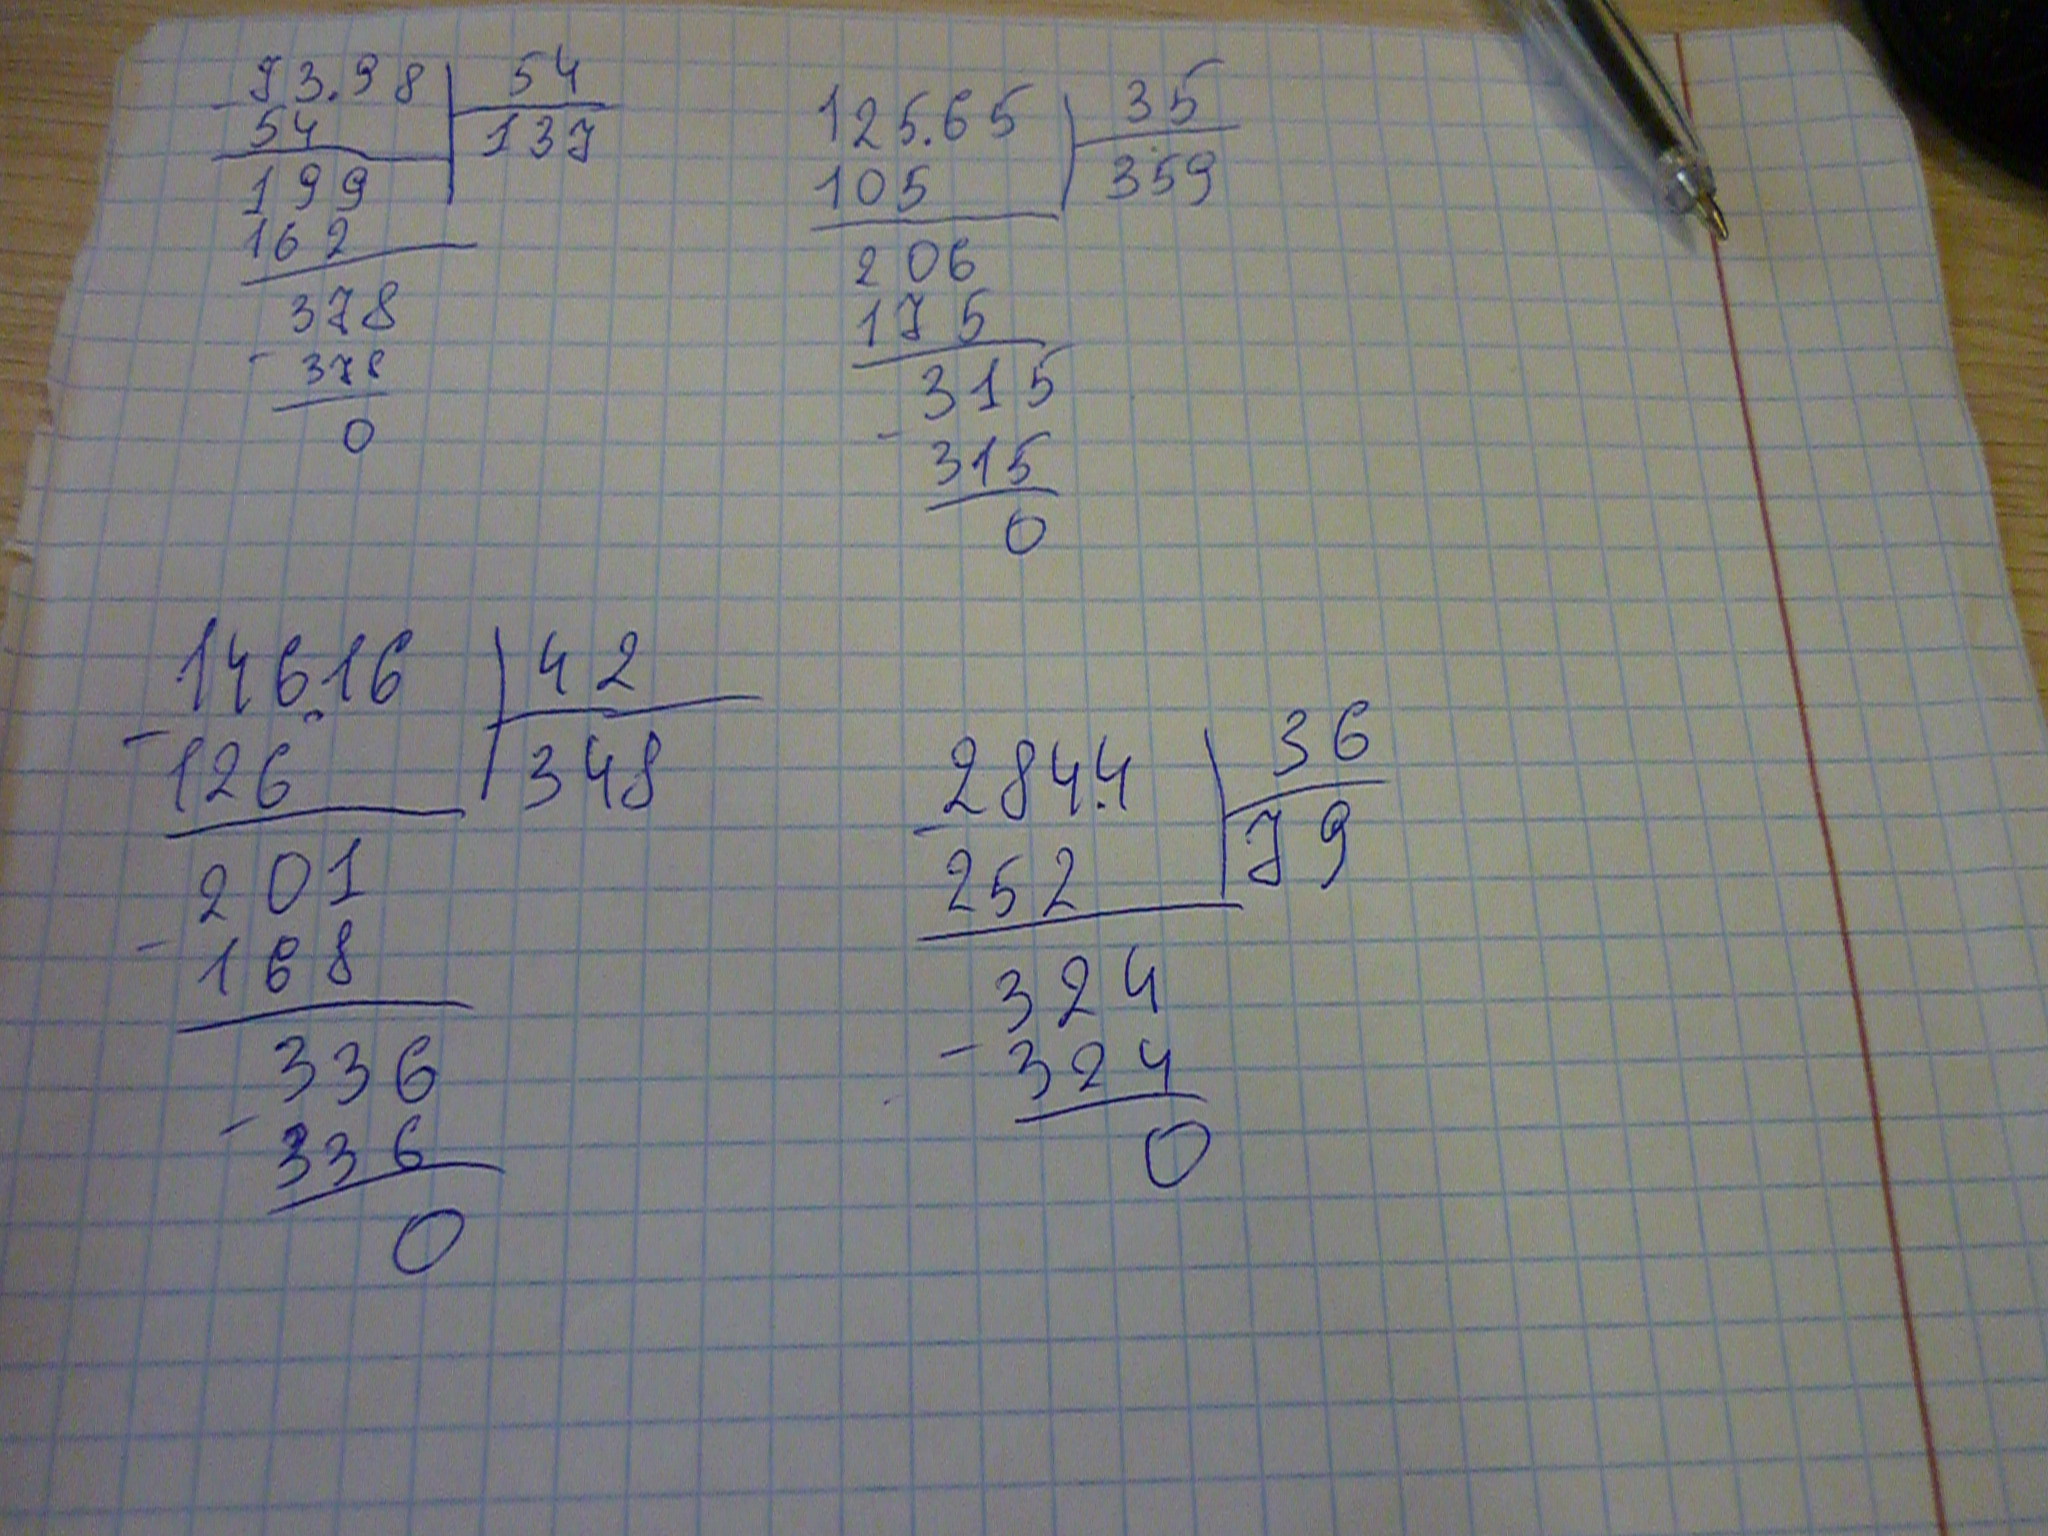 73.98 54
54 137
199
162
378
- 378
0
125.65 35
105 359
206
175
315
- 315
0
146.16 42
- 126 348
201
- 168
336
- 336
0
284.4 36
- 252 79
324
- 324
0